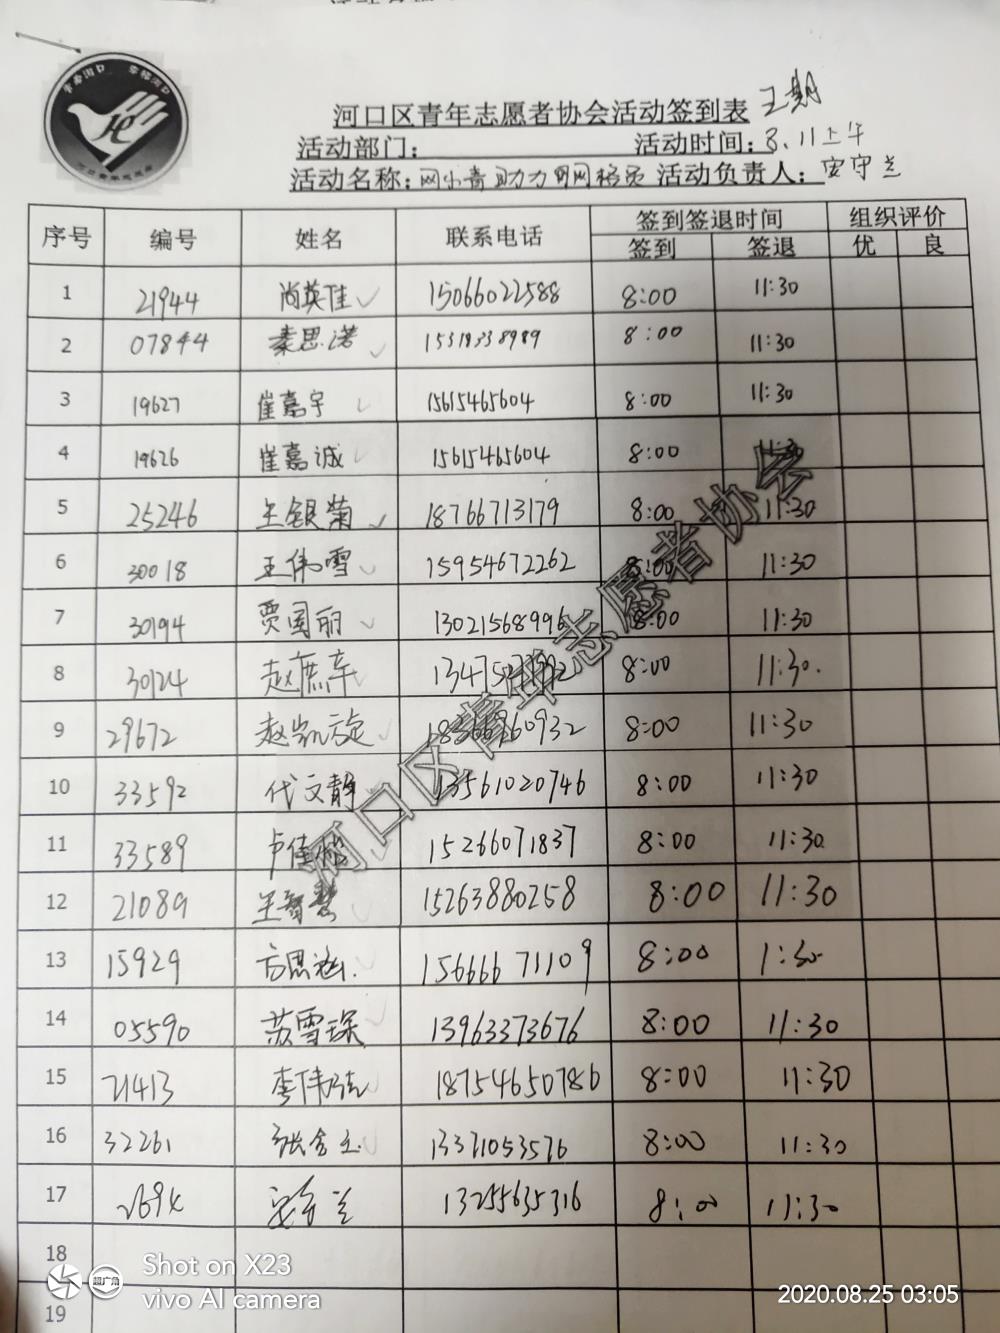 河口区青年志愿者协会活动签到表 二期
活动部门： 活动时间：8.11上午
活动名称：网小青助力网格员 活动负责人：安守兰
序号 编号 姓名 联系电话 签到签退时间 组织评价
签到 签退 优 良
1 21944 尚英佳 15066022588 8:00 11:30
2 07844 秦思诺 15318338989 8:00 11:30
3 19627 崔嘉宇 15615465604 8:00 11:30
4 19626 崔嘉诚 15615465604 8:00 11:30
5 25246 王银菊 18766713179 8:00 11:30
6 30018 王伟雪 15954672262 8:00 11:30
7 30194 贾国丽 13021568996 8:00 11:30
8 30124 8:00 11:30.
9 29672 赵凯旋 18366960932 8:00 11:30
10 33592 代文静 13561020746 8:00 11:30
11 33589 15266071837 8:00 11:30
12 21089 王 15263880258 8:00 11:30
13 15929 方思涵. 15666671109 8:00 1:30
14 05590 苏雪琛 13963373676 8:00 11:30
15 21413 李伟 18754650786 8:00 11:30
16 32261 张 13371053576 8:00 11:30
17 安守兰 13255635316 8:00 11:30
18
19
河口区青年志愿者协会
超广角
Shot on X23
vivo AI camera
2020.08.25 03:05